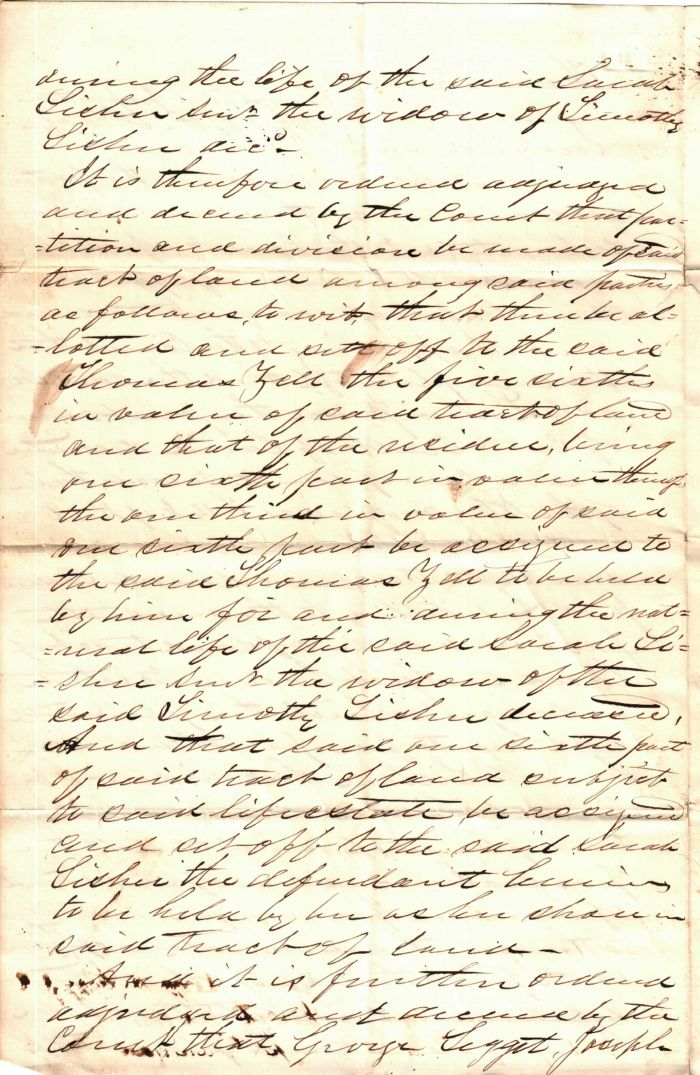 during the life of the said Sarah
Lisher Senr the widow of Timothy
Lisher decd -
It is therefore ordered adjudged
and decreed by the Court that par-
-tition and division be made of said
tract of land among said parties
as follows, to wit, that there be al-
-lotted and set off to the said
Thomas Zell the five sixths
in value of said tract of land
and that of the residue, being
one sixth part in value thereof
the one third in value of said
one sixth part be assigned to
the said Thomas Zell to be held
by him for and during the nat-
-ural life of the said Sarah Li-
-sher Senr the widow of the
said Timothy Lisher deceased,
And that said one sixth part
of said tract of land subject
to said life estate be assigned
and set off to the said Sarah
Lisher the defendant herein
to be held by her as her share in
said tract of land -
And it is further ordered
adjudged and decreed by the
Court that George Legget, Joseph